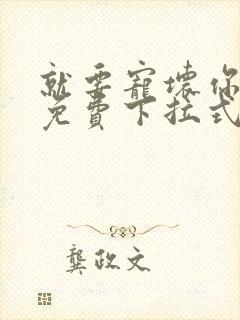 就要寵壞你
免費下拉式
龔政文